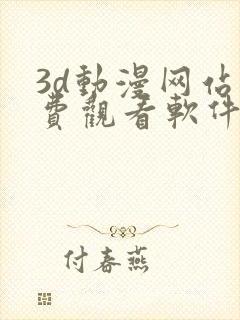 3d動漫网佔
費觀看軟件
付春燕